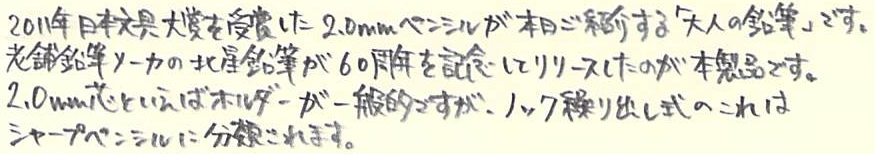 2011年日本文具大賞を受賞した2.0mmペンシルが本日ご紹介する「大人の鉛筆」です。
老舗鉛筆メーカの北星鉛筆が60周年を記念してリリースしたのが本製品です。
2.0mm芯といえばホルダーが一般的ですが、ノック繰り出し式のこれは
シャープペンシルに分類されます。